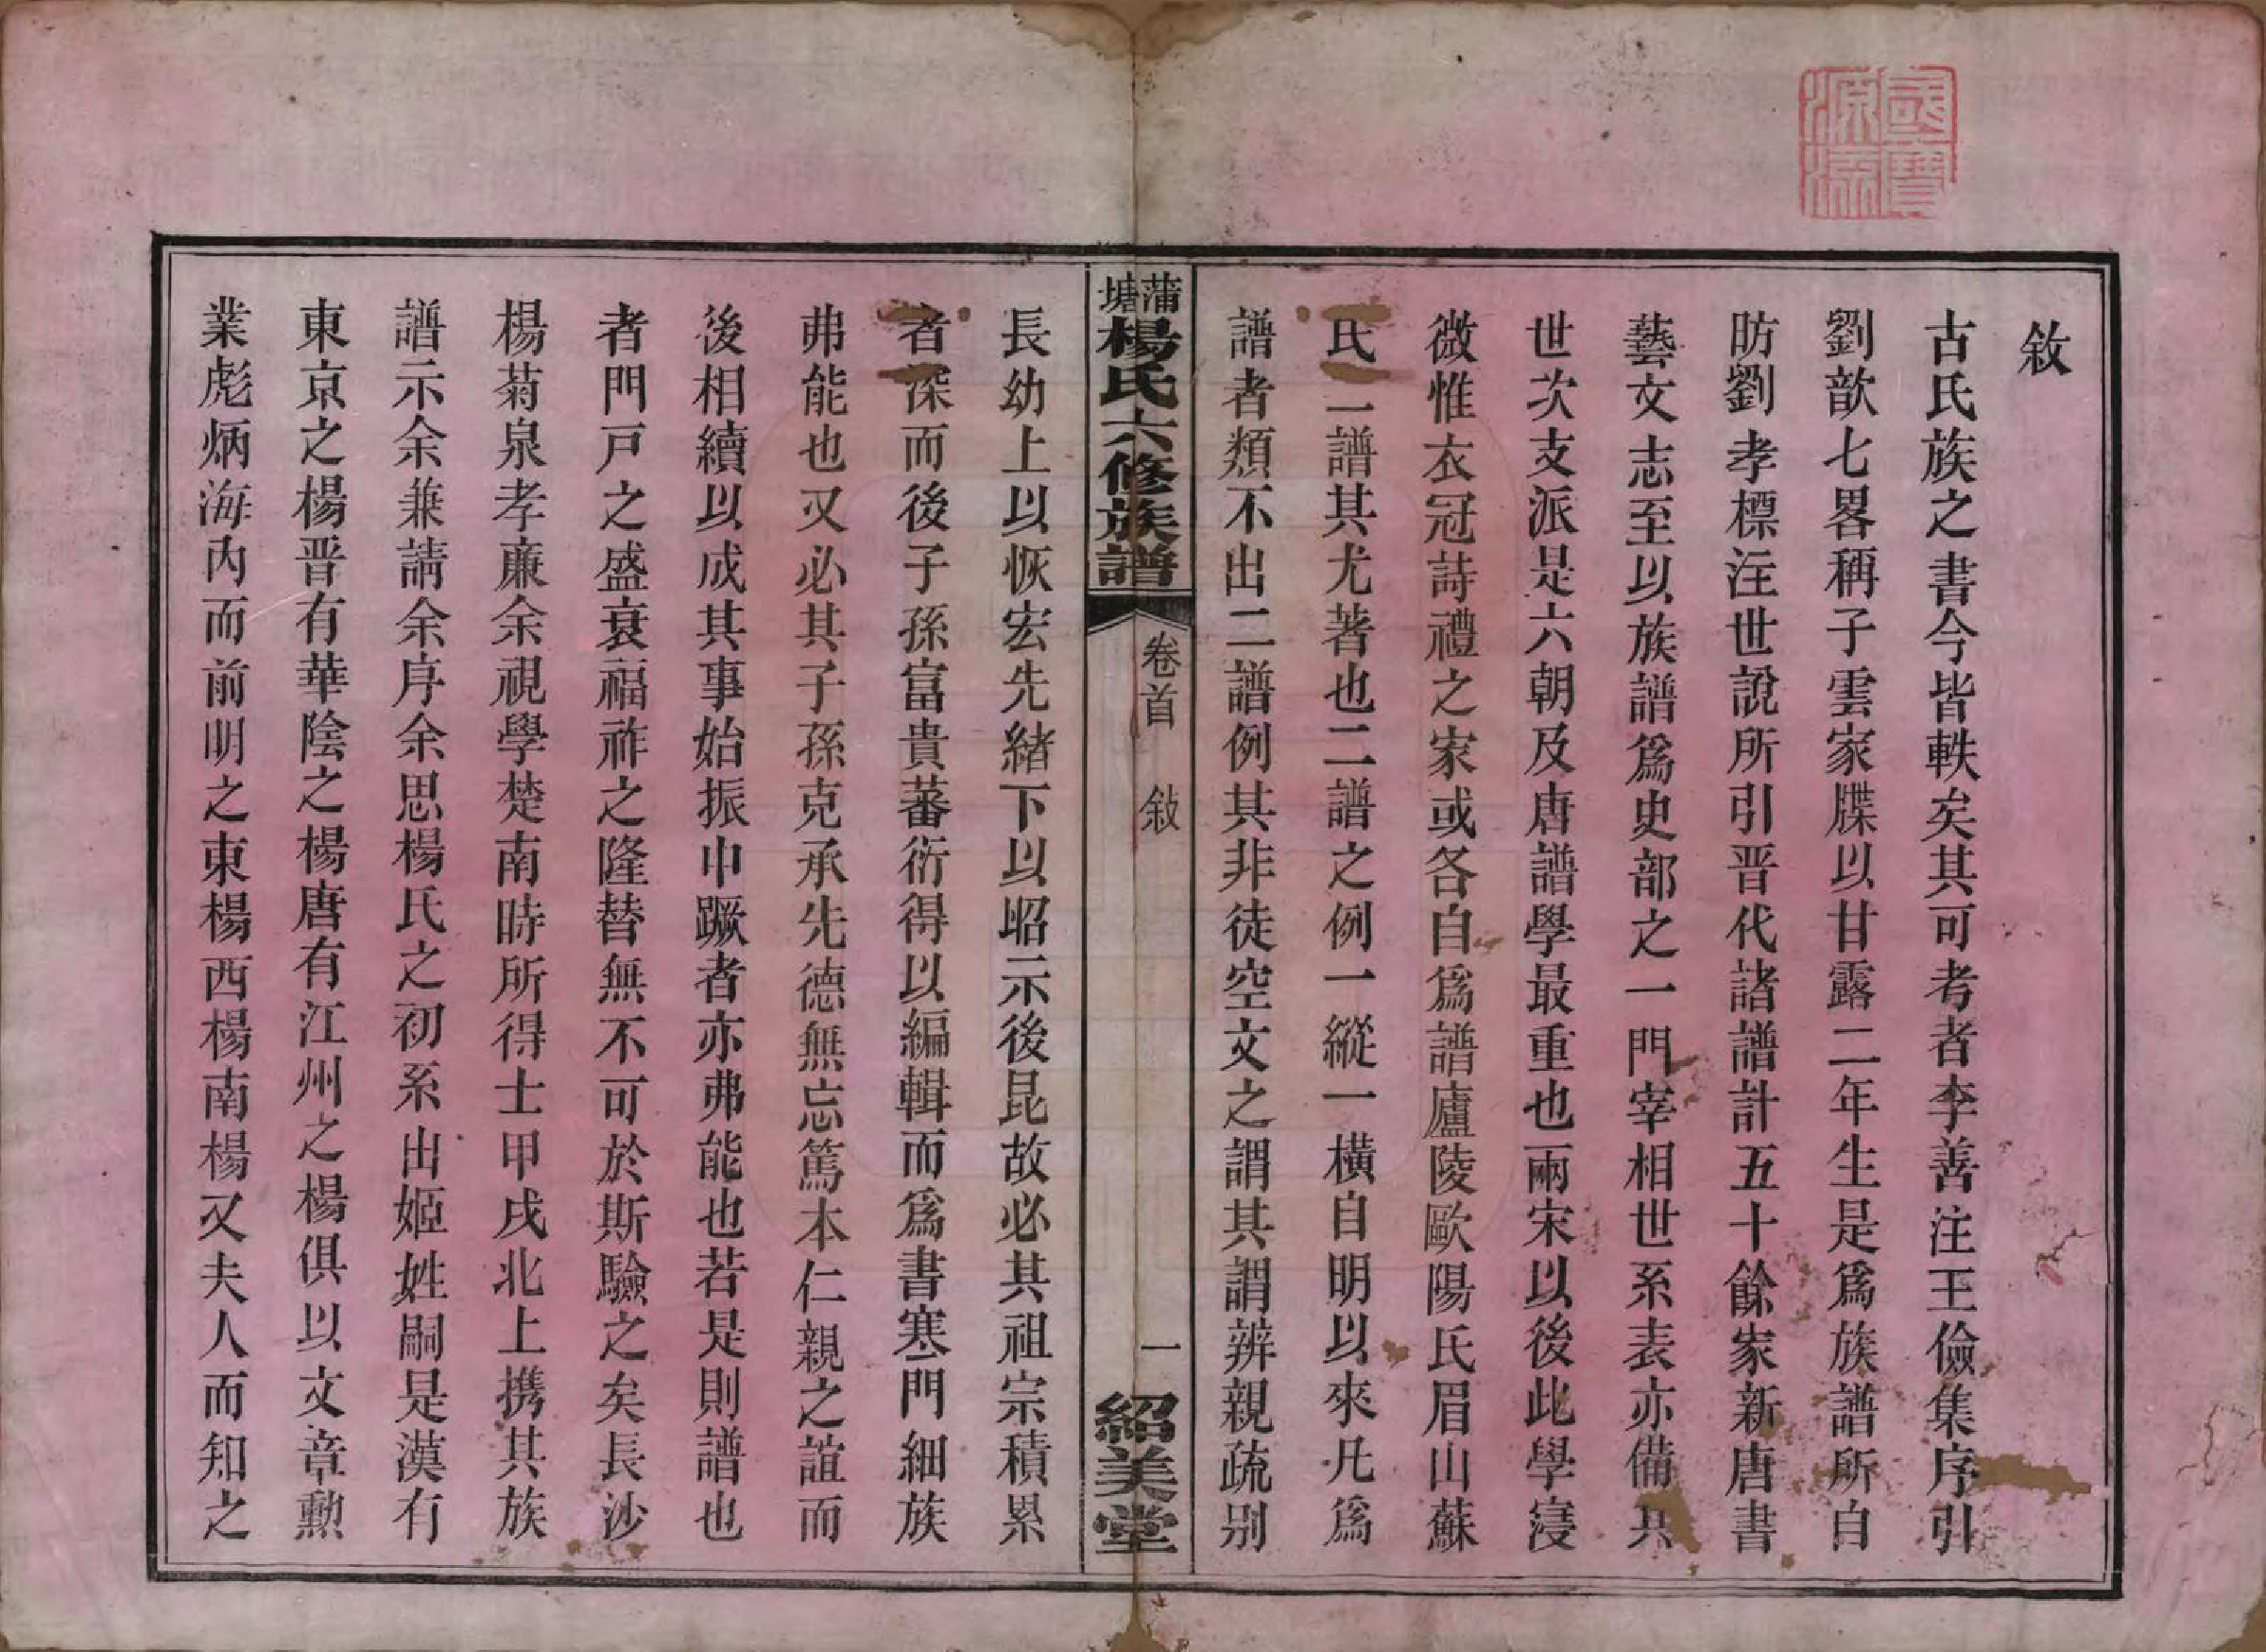 國寶
源流
敘
古氏族之書今皆軼矣其可考者李善注王儉集序引
劉歆七畧稱子雲家牒以甘露二年生是爲族譜所自
昉劉孝標注世說所引晋代諸譜計五十餘家新唐書
藝文志至以族譜爲史部之一門宰相世系表亦備具
世次支派是六朝及唐譜學最重也兩宋以後此學寖
微惟衣冠詩禮之家或各自爲譜廬陵歐陽氏眉山蘇
氏二譜其尤著也二譜之例一縱一橫自明以來凡爲
譜者類不出二譜例其非徒空文之謂其謂辨親疏別
蒲塘楊氏六修族譜
卷首 敍 一
紹美堂
長幼上以恢宏先緒下以昭示後昆故必其祖宗積累
者深而後子孫富貴蕃衍得以編輯而爲書寒門細族
弗能也又必其子孫克承先德無忘篤本仁親之誼而
後相續以成其事始振中蹶者亦弗能也若是則譜也
者門戸之盛衰福祚之隆替無不可於斯驗之矣長沙
楊菊泉孝廉余視學楚南時所得士甲戌北上携其族
譜示余兼請余序余思楊氏之初系出姬姓嗣是漢有
東京之楊晋有華陰之楊唐有江州之楊俱以文章勳
業彪炳海內而前明之東楊西楊南楊又夫人而知之